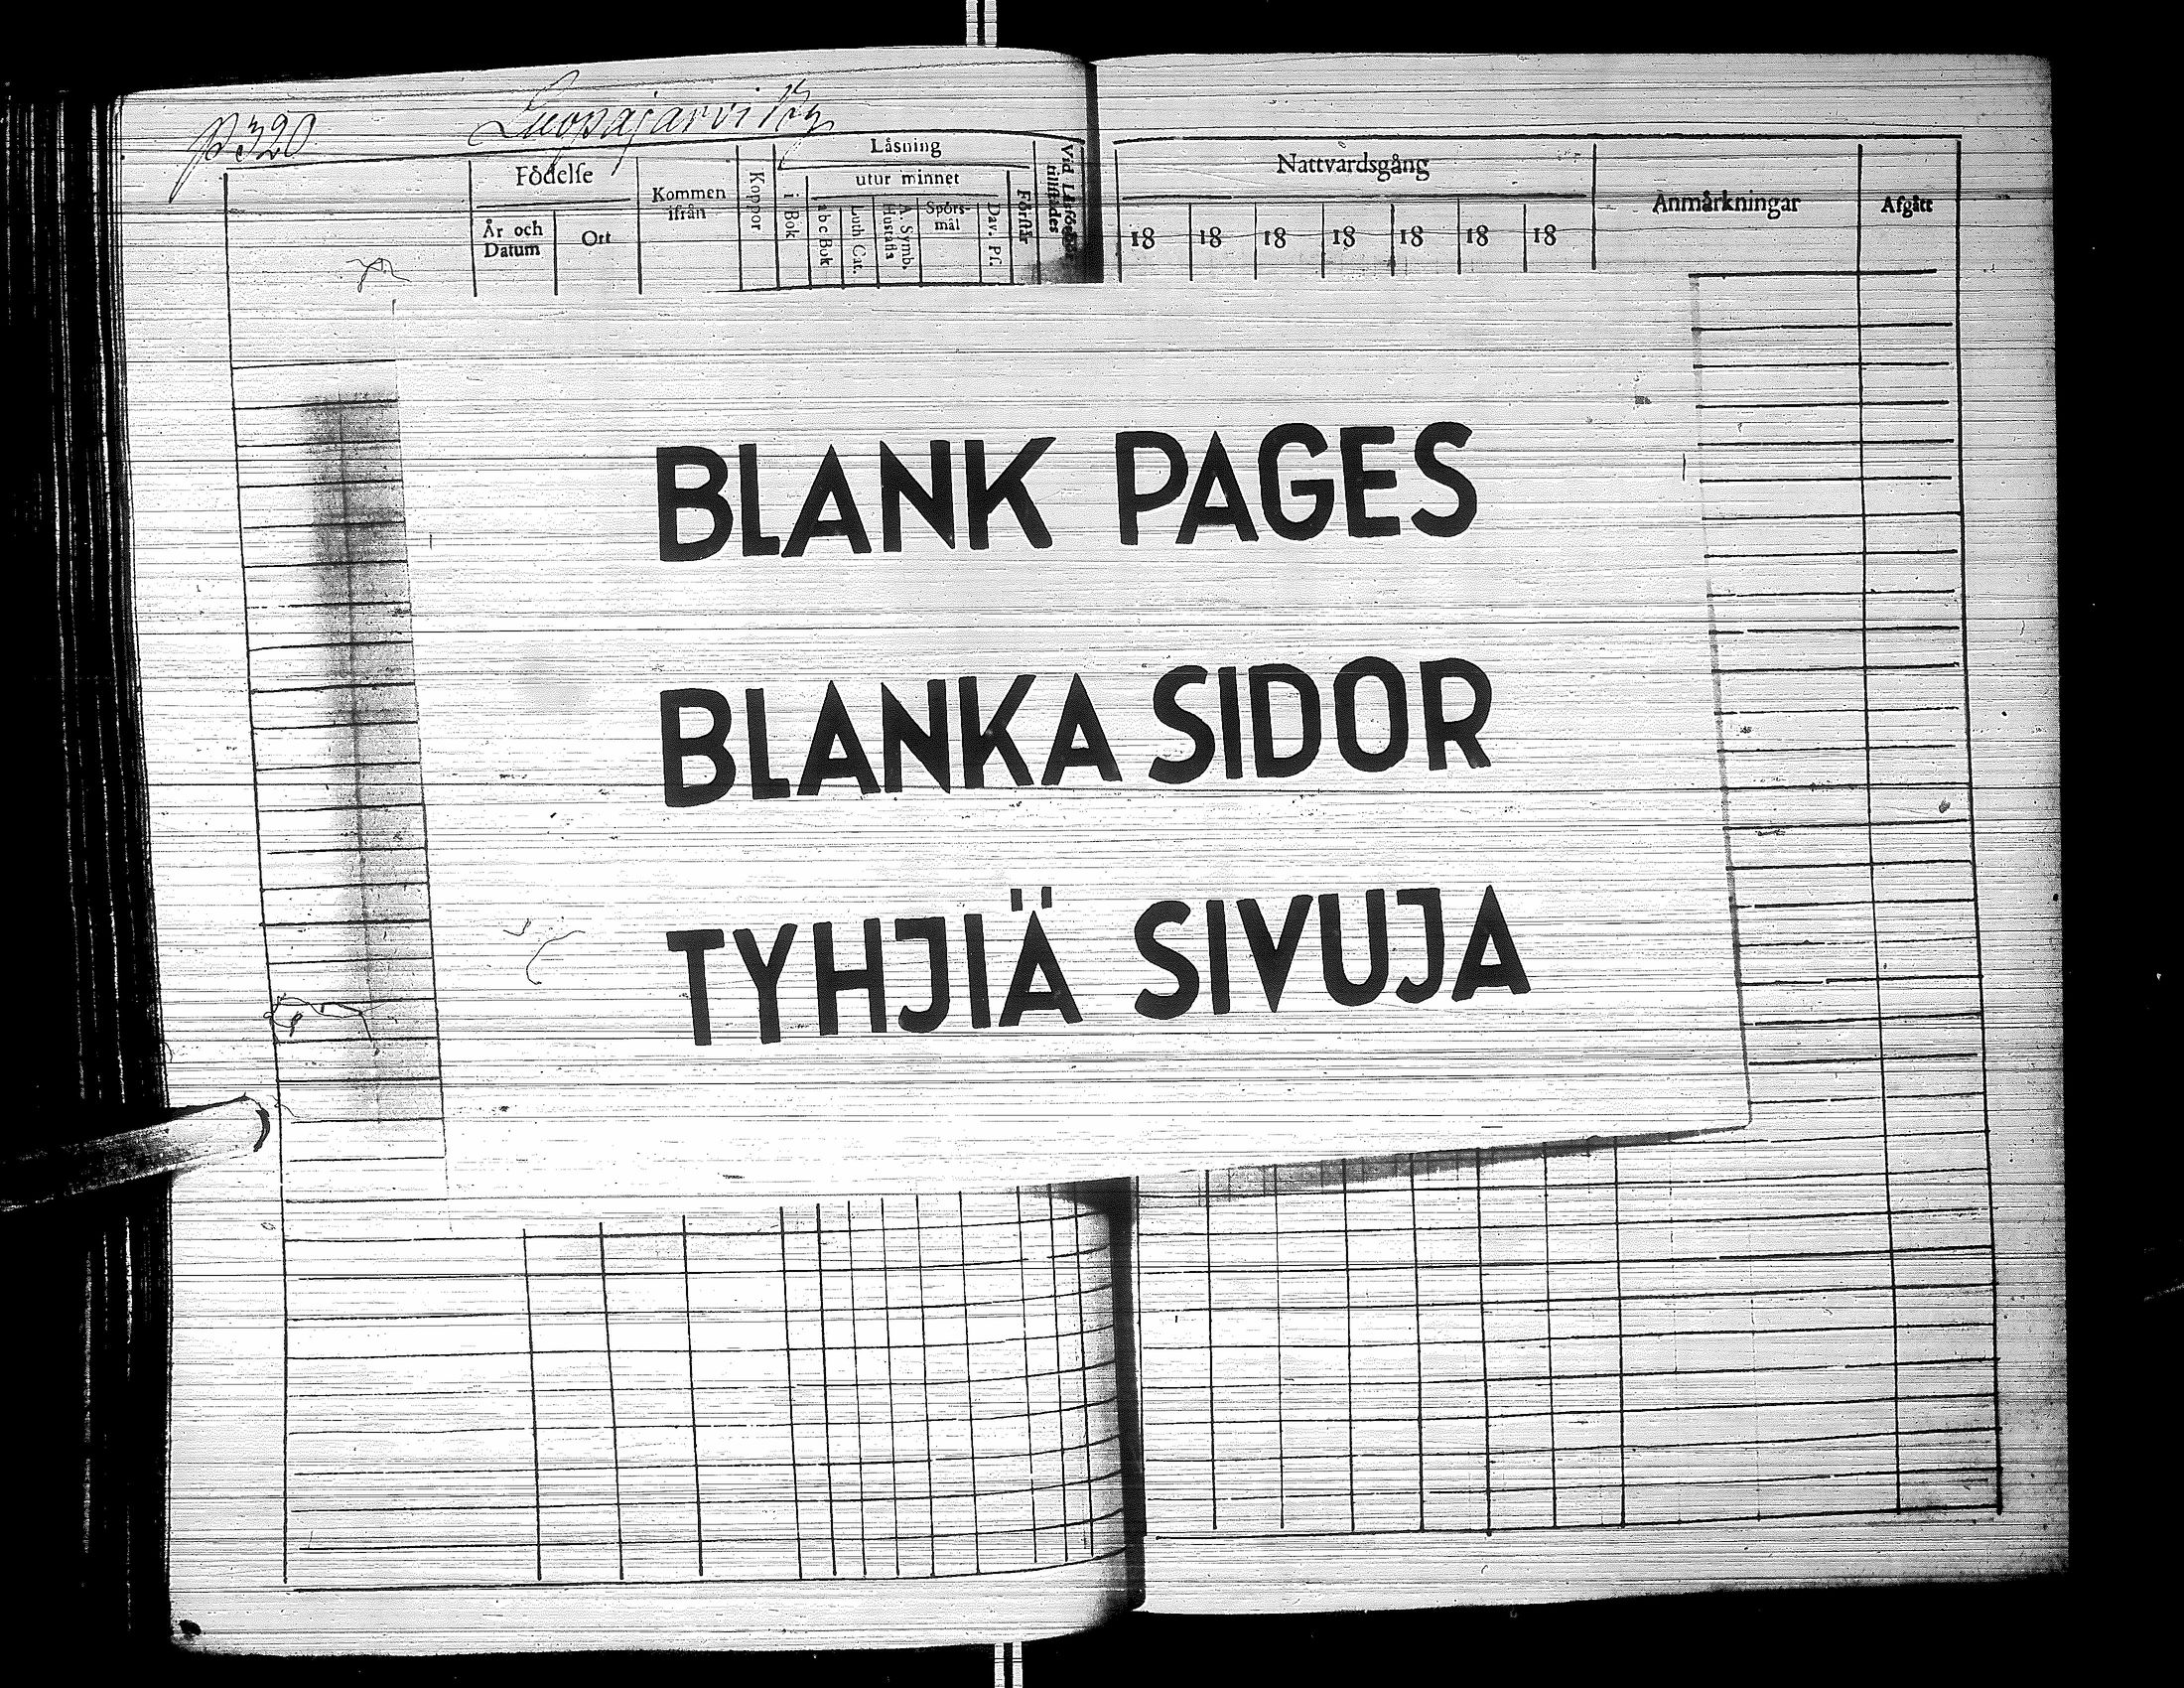 P 320 Luopajärvi By
Läsning
Födelse
utur minnet
Kommen ifrån
Koppor
i Bok
År och Datum
Ort
abc Bok
Luth Cat.
A. Symb. Hustafla
Spörs-mål
Dav. Pf.
Förstår
Vid Läsförhör tillstädes
Nattvardsgång
Anmärkningar
Afgått
18 18 18 18 18 18 18
BLANK PAGES
BLANKA SIDOR
TYHJIÄ SIVUJA